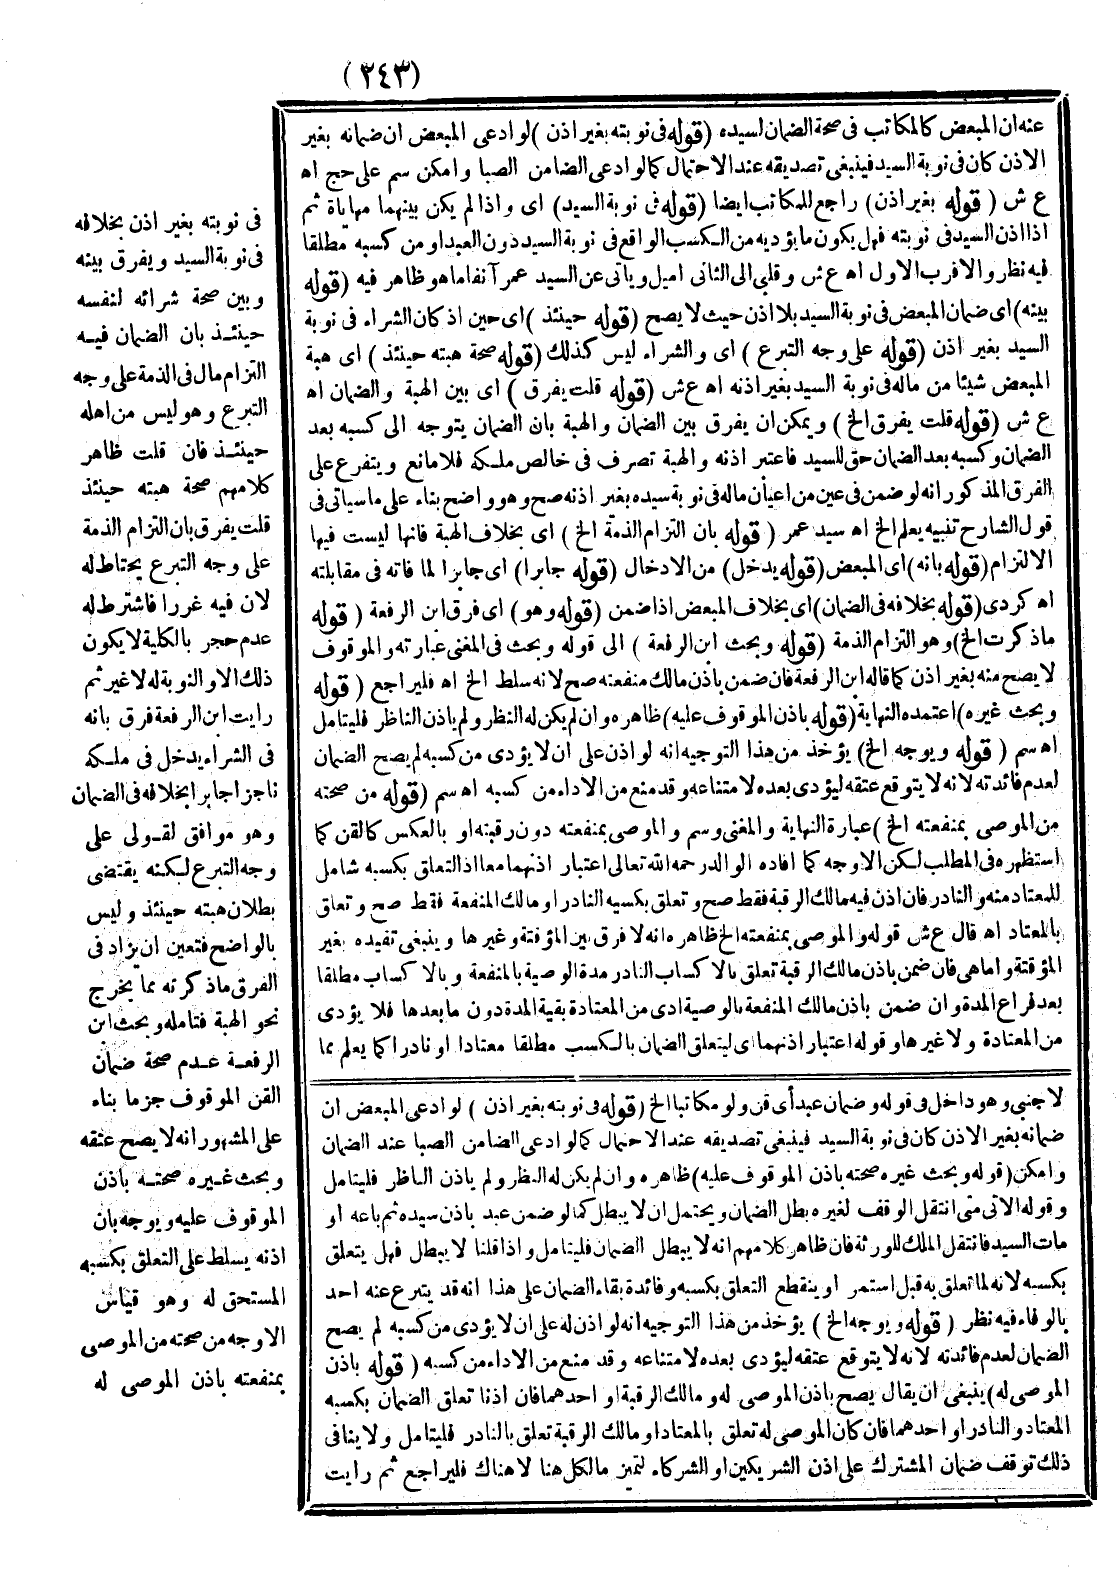 (٢٤٣)
عنه ان المبعض كالمكاتب فى صحة الضمان لسيده (قوله فى نوبته بغير اذن) لو ادعى المبعض ان ضمانه بغير
الاذن كان فى نوبة السيد فينبغى تصديقه عند الاحتمال كما لو ادعى الضامن الصبا و امكن سم على حج اه
ع ش (قوله بغير اذن) راجع للمكاتب ايضا (قوله فى نوبة السيد) اى و اذا لم يكن بينهما مهاياة ثم
اذا اذن السيد فى نوبته فهل يكون ما يؤديه من الكسب الواقع فى نوبة السيد دون العبد او من كسبه مطلقا
فيه نظر و الاقرب الاول اه ع ش و قلبى الى الثانى اميل و ياتى عن السيد عمر آنفا ما هو ظاهر فيه (قوله
بينه) اى ضمان المبعض فى نوبة السيد بلا اذن حيث لا يصح (قوله حينئذ) اى حين اذ كان الشراء فى نوبة
السيد بغير اذن (قوله على وجه التبرع) اى و الشراء ليس كذلك (قوله صحة هبته حينئذ) اى هبة
المبعض شيئا من ماله فى نوبة السيد بغير اذنه اه ع ش (قوله قلت يفرق) اى بين الهبة و الضمان اه
ع ش (قوله قلت يفرق الخ) و يمكن ان يفرق بين الضمان و الهبة بان الضمان يتوجه الى كسبه بعد
الضمان و كسبه بعد الضمان حق للسيد فاعتبر اذنه و الهبة تصرف فى خالص ملكه فلا مانع و يتفرع على
الفرق المذكور انه لو ضمن فى عين من اعيان ماله فى نوبة سيده بغير اذنه صح و هو واضح بناء على ما سياتى فى
قول الشارح تنبيه يعلم الخ اه سيد عمر (قوله بان التزام الذمة الخ) اى بخلاف الهبة فانها ليست فيها
الالتزام (قوله بانه) اى المبعض (قوله يدخل) من الادخال (قوله جابرا) اى جابرا لما فاته فى مقابلته
اه كردى (قوله بخلافه فى الضمان) اى بخلاف المبعض اذا ضمن (قوله و هو) اى فرق ابن الرفعة (قوله
ما ذكرت الخ) و هو التزام الذمة (قوله و بحث ابن الرفعة) الى قوله و بحث فى المغنى عبارته و الموقوف
لا يصح منه بغير اذن كما قاله ابن الرفعة فان ضمن باذن مالك منفعته صح لانه سلط الخ اه فليراجع (قوله
و بحث غيره) اعتمده النهاية (قوله باذن الموقوف عليه) ظاهره و ان لم يكن له النظر و لم ياذن الناظر فليتامل
اه سم (قوله و يوجه الخ) يؤخذ من هذا التوجيه انه لو اذن على ان لا يؤدى من كسبه لم يصح الضمان
لعدم فائدته لانه لا يتوقع عتقه ليؤدى بعده لامتناعه و قد منع من الاداء من كسبه اه سم (قوله من صحته
من الموصى بمنفعته الخ) عبارة النهاية و المغنى و سم و الموصى بمنفعته دون رقبته او بالعكس كالقن كما
استظهره فى المطلب لكن الاوجه كما افاده الوالد رحمه الله تعالى اعتبار اذنهما معا اذ التعلق بكسبه شامل
للمعتاد منه و النادر فان اذن فيه مالك الرقبة فقط صح و تعلق بكسبه النادر او مالك المنفعة فقط صح و تعلق
بالمعتاد اه قال ع ش قوله و الموصى بمنفعته الخ ظاهره انه لا فرق بين المؤقتة و غيرها و ينبغى تقيده بغير
المؤقتة و اما هى فان ضمن باذن مالك الرقبة تعلق بالاكساب النادر مدة الوصية بالمنفعة و بالاكساب مطلقا
بعد فراغ المدة و ان ضمن باذن مالك المنفعة بالوصية ادى من المعتادة بقية المدة دون ما بعدها فلا يؤدى
من المعتادة و لا غيرها و قوله اعتبار اذنهما اى ليتعلق الضمان بالكسب مطلقا معتادا او نادرا كما يعلم مما
فى نوبته بغير اذن بخلافه
فى نوبة السيد و يفرق بينه
و بين صحة شرائه لنفسه
حينئذ بان الضمان فيه
التزام مال فى الذمة على وجه
التبرع و هو ليس من اهله
حينئذ فان قلت ظاهر
كلامهم صحة هبته حينئذ
قلت يفرق بان التزام الذمة
على وجه التبرع يحتاط له
لان فيه غررا فاشترط له
عدم حجر بالكلية لا يكون
ذلك الا و النوبة له لا غير ثم
رايت ابن الرفعة فرق بانه
فى الشراء يدخل فى ملكه
ناجزا جابرا بخلافه فى الضمان
و هو موافق لقولى على
وجه التبرع لكنه يقتضى
بطلان هبته حينئذ و ليس
بالواضح فتعين ان يزاد فى
الفرق ما ذكرته مما يخرج
نحو الهبة فتامله و بحث ابن
الرفعة عدم صحة ضمان
القن الموقوف جزما بناء
على المشهور انه لا يصح عتقه
و بحث غيره صحته باذن
الموقوف عليه و يوجه بان
اذنه يسلط على التعلق بكسبه
المستحق له و هو قياس
الاوجه من صحته من الموصى
بمنفعته باذن الموصى له
لاجنبى و هو داخل فى قوله و ضمان عبد أى قن و لو مكاتبا الخ (قوله فى نوبته بغير اذن) لو ادعى المبعض ان
ضمانه بغير الاذن كان فى نوبة السيد فينبغى تصديقه عند الاحتمال كما لو ادعى الضامن الصبا عند الضمان
و امكن (قوله و بحث غيره صحته باذن الموقوف عليه) ظاهره و ان لم يكن له النظر و لم ياذن الناظر فليتامل
و قوله الآتى متى انتقل الوقف لغيره بطل الضمان و يحتمل ان لا يبطل كما لو ضمن عبد باذن سيده ثم باعه او
مات السيد فانتقل الملك للورثة فان ظاهر كلامهم انه لا يبطل الضمان فليتامل و اذا قلنا لا يبطل فهل يتعلق
بكسبه لانه لما تعلق به قبل استمر او ينقطع التعلق بكسبه و فائدة بقاء الضمان على هذا انه قد يتبرع عنه احد
بالوفاء فيه نظر (قوله و يوجه الخ) يؤخذ من هذا التوجيه انه لو اذن له على ان لا يؤدى من كسبه لم يصح
الضمان لعدم فائدته لانه لا يتوقع عتقه ليؤدى بعده لامتناعه و قد منع من الاداء من كسبه (قوله باذن
الموصى له) ينبغى ان يقال يصح باذن الموصى له و مالك الرقبة او احدهما فان اذنا تعلق الضمان بكسبه
المعتاد و النادر او احدهما فان كان الموصى له تعلق بالمعتاد او مالك الرقبة تعلق بالنادر فليتامل و لا ينافى
ذلك توقف ضمان المشترك على اذن الشريكين او الشركاء لتميز ما لكل هنا لا هناك فليراجع ثم رايت